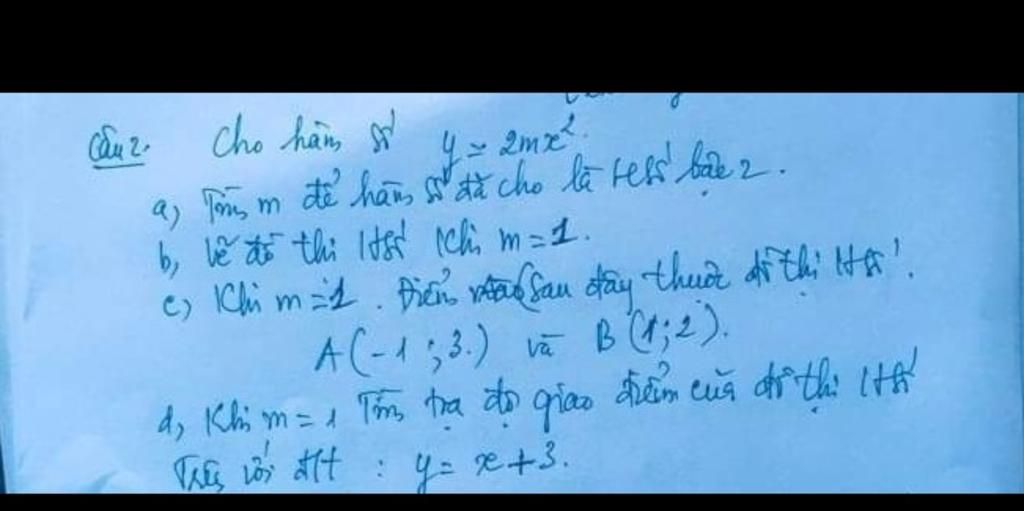 Câu 2. Cho hàm số y = 2mx².
a, Tìm m để hàm số đã cho là HSố bậc 2.
b, Vẽ đồ thị HSố khi m = 1.
c) Khi m = 1. Điểm nào sau đây thuộc đồ thị HSố.
A(-1; 3.) và B(1; 2).
d, Khi m = 1 Tìm tọa độ giao điểm của đồ thị HSố
Trên với đ/t : y = x + 3.